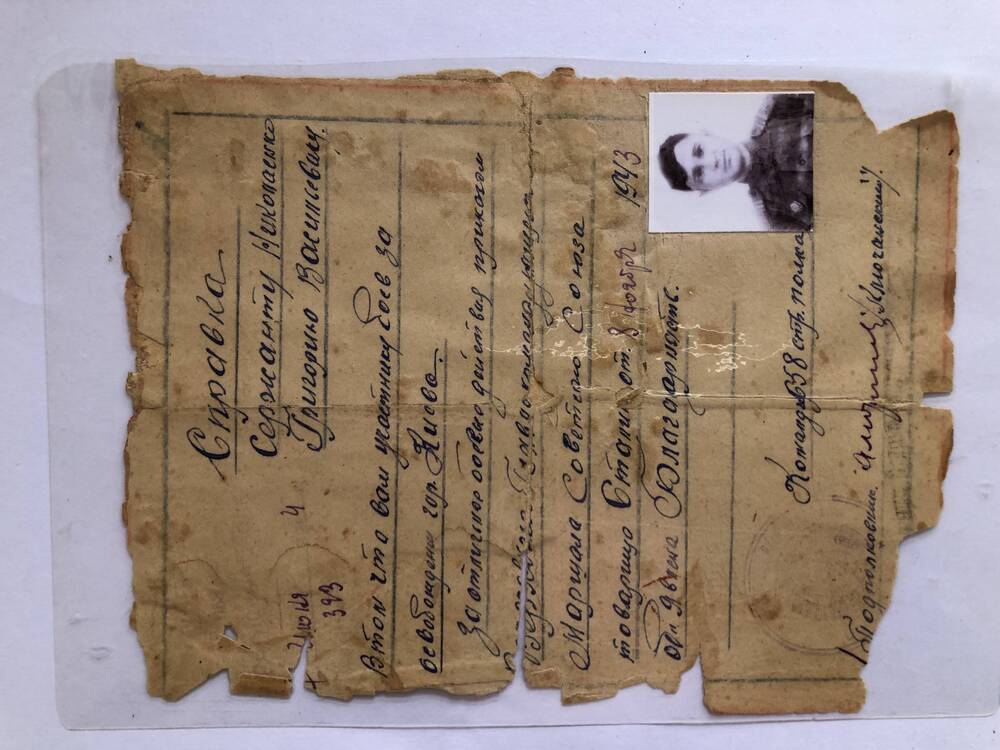 Справка
Сержанту Николаенко
Григорию Васильевичу.
4 Июня
393
В том что вам участнику боев за
освобождение гор. Киева.
За отличные боевые действия приказом
Верховного Главнокомандующего
Маршала Советского Союза
товарища Сталин от. 8 Ноября 1943
объявлена Благодарность.
Командир 658 стр. полка
Подполковник. /Ключанский/.